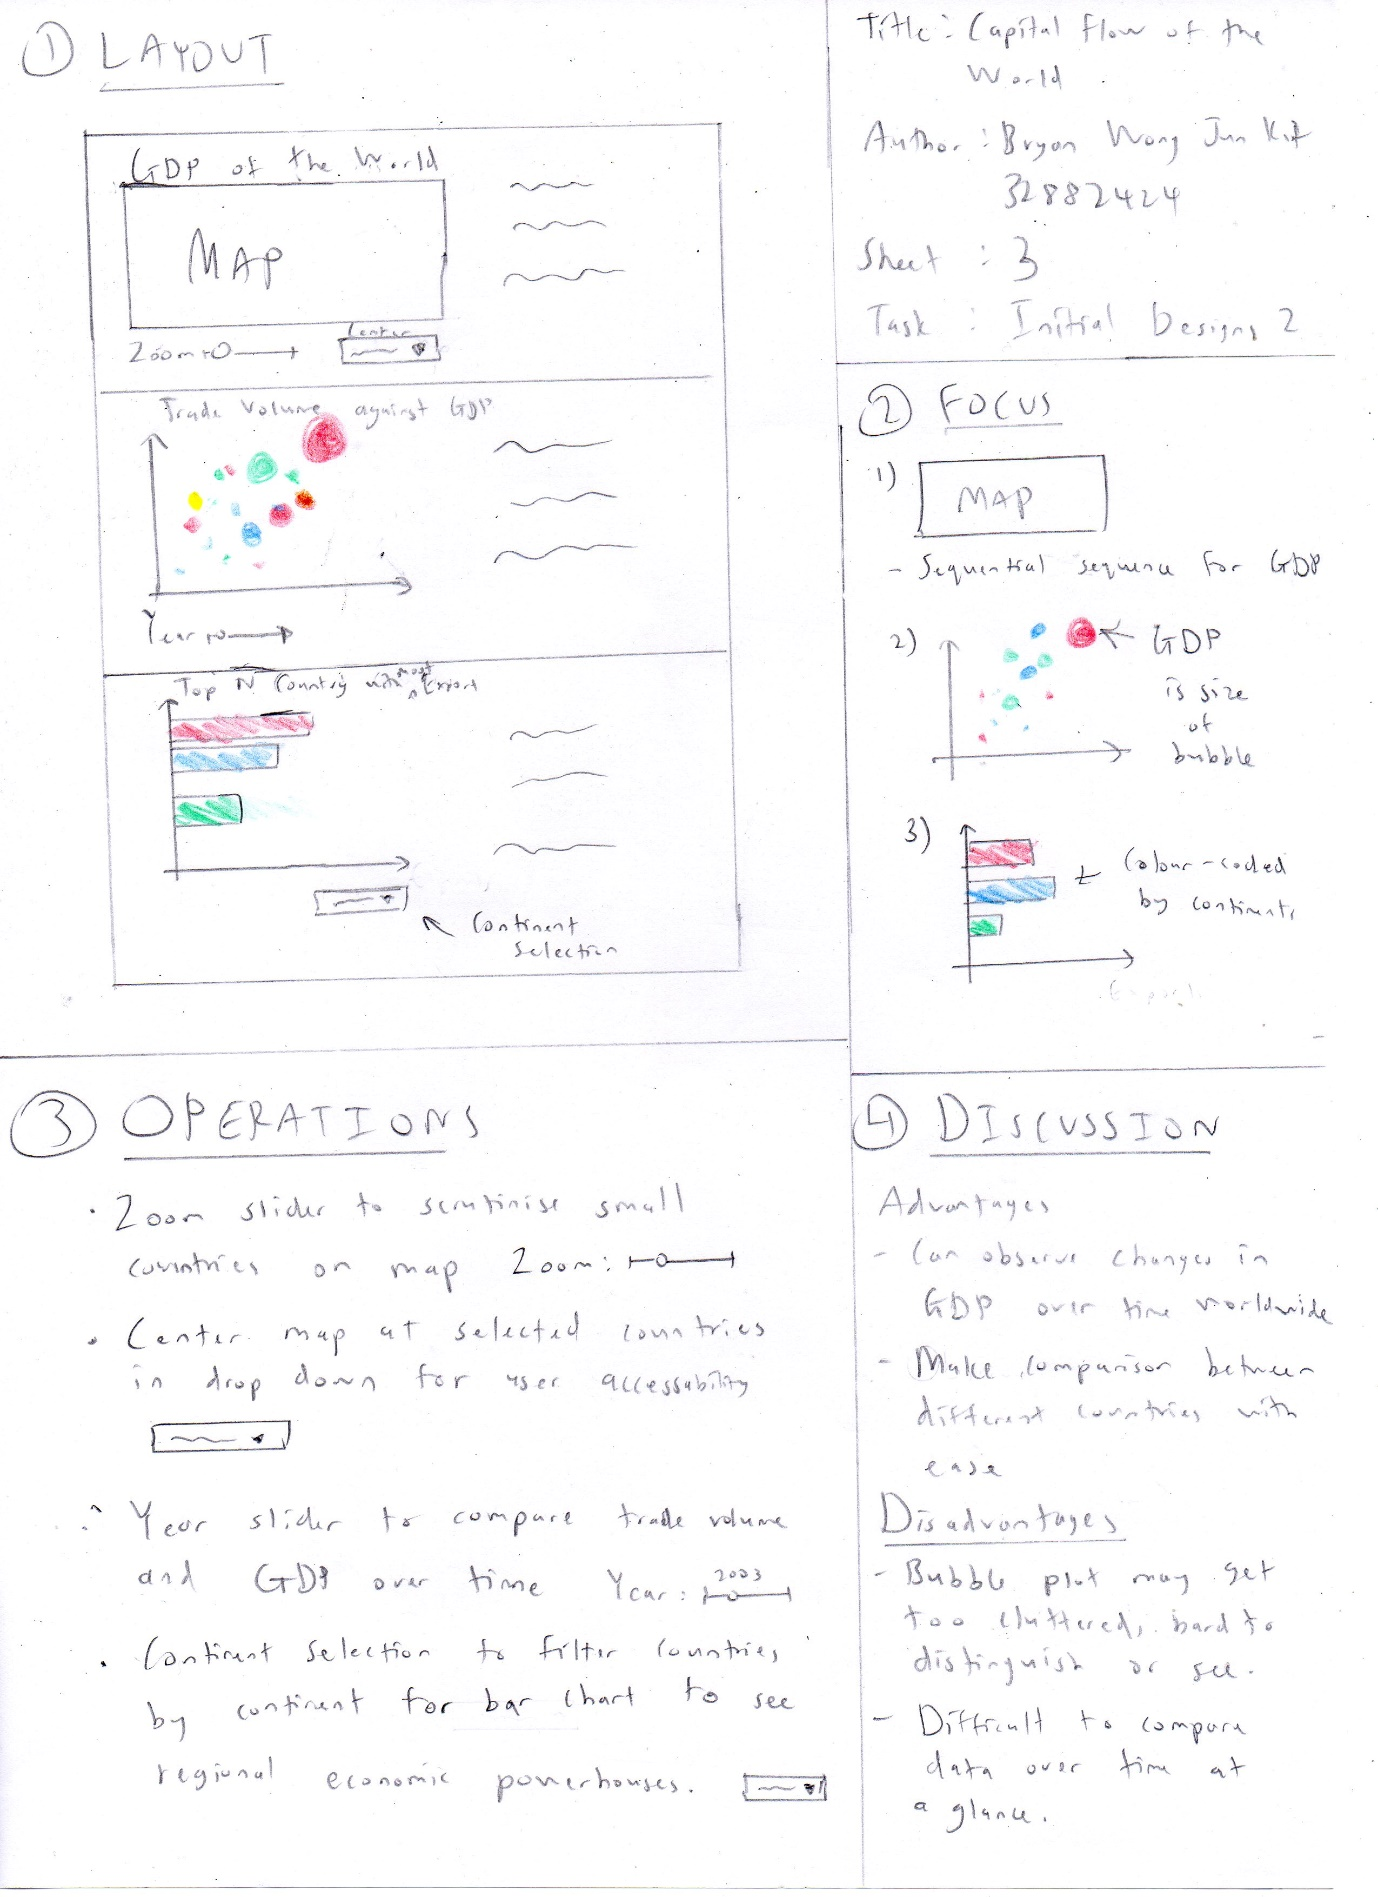 ① LAYOUT
GDP of the World
MAP
Zoom
Center
Trade Volume against GDP
Year
Top N Country with most Export
Continent
Selection
Title: Capital Flow of the
World
Author: Bryan Wong Jun Kit
32882424
Sheet : 3
Task : Initial Designs 2
② FOCUS
1)
MAP
- Sequential sequence for GDP
2)
GDP
is size
of
bubble
3)
Colour-coded
by continents
③ OPERATIONS
• Zoom slider to scrutinise small
countries on map Zoom:
• Center map at selected countries
in drop down for user accessability
• Year slider to compare trade volume
and GDP over time Year: 2003
• Continent selection to filter countries
by continent for bar chart to see
regional economic powerhouses.
④ DISCUSSION
Advantages
- Can observe changes in
GDP over time worldwide
- Make comparison between
different countries with
ease
Disadvantages
- Bubble plot may get
too cluttered, hard to
distinguish or see.
- Difficult to compare
data over time at
a glance.